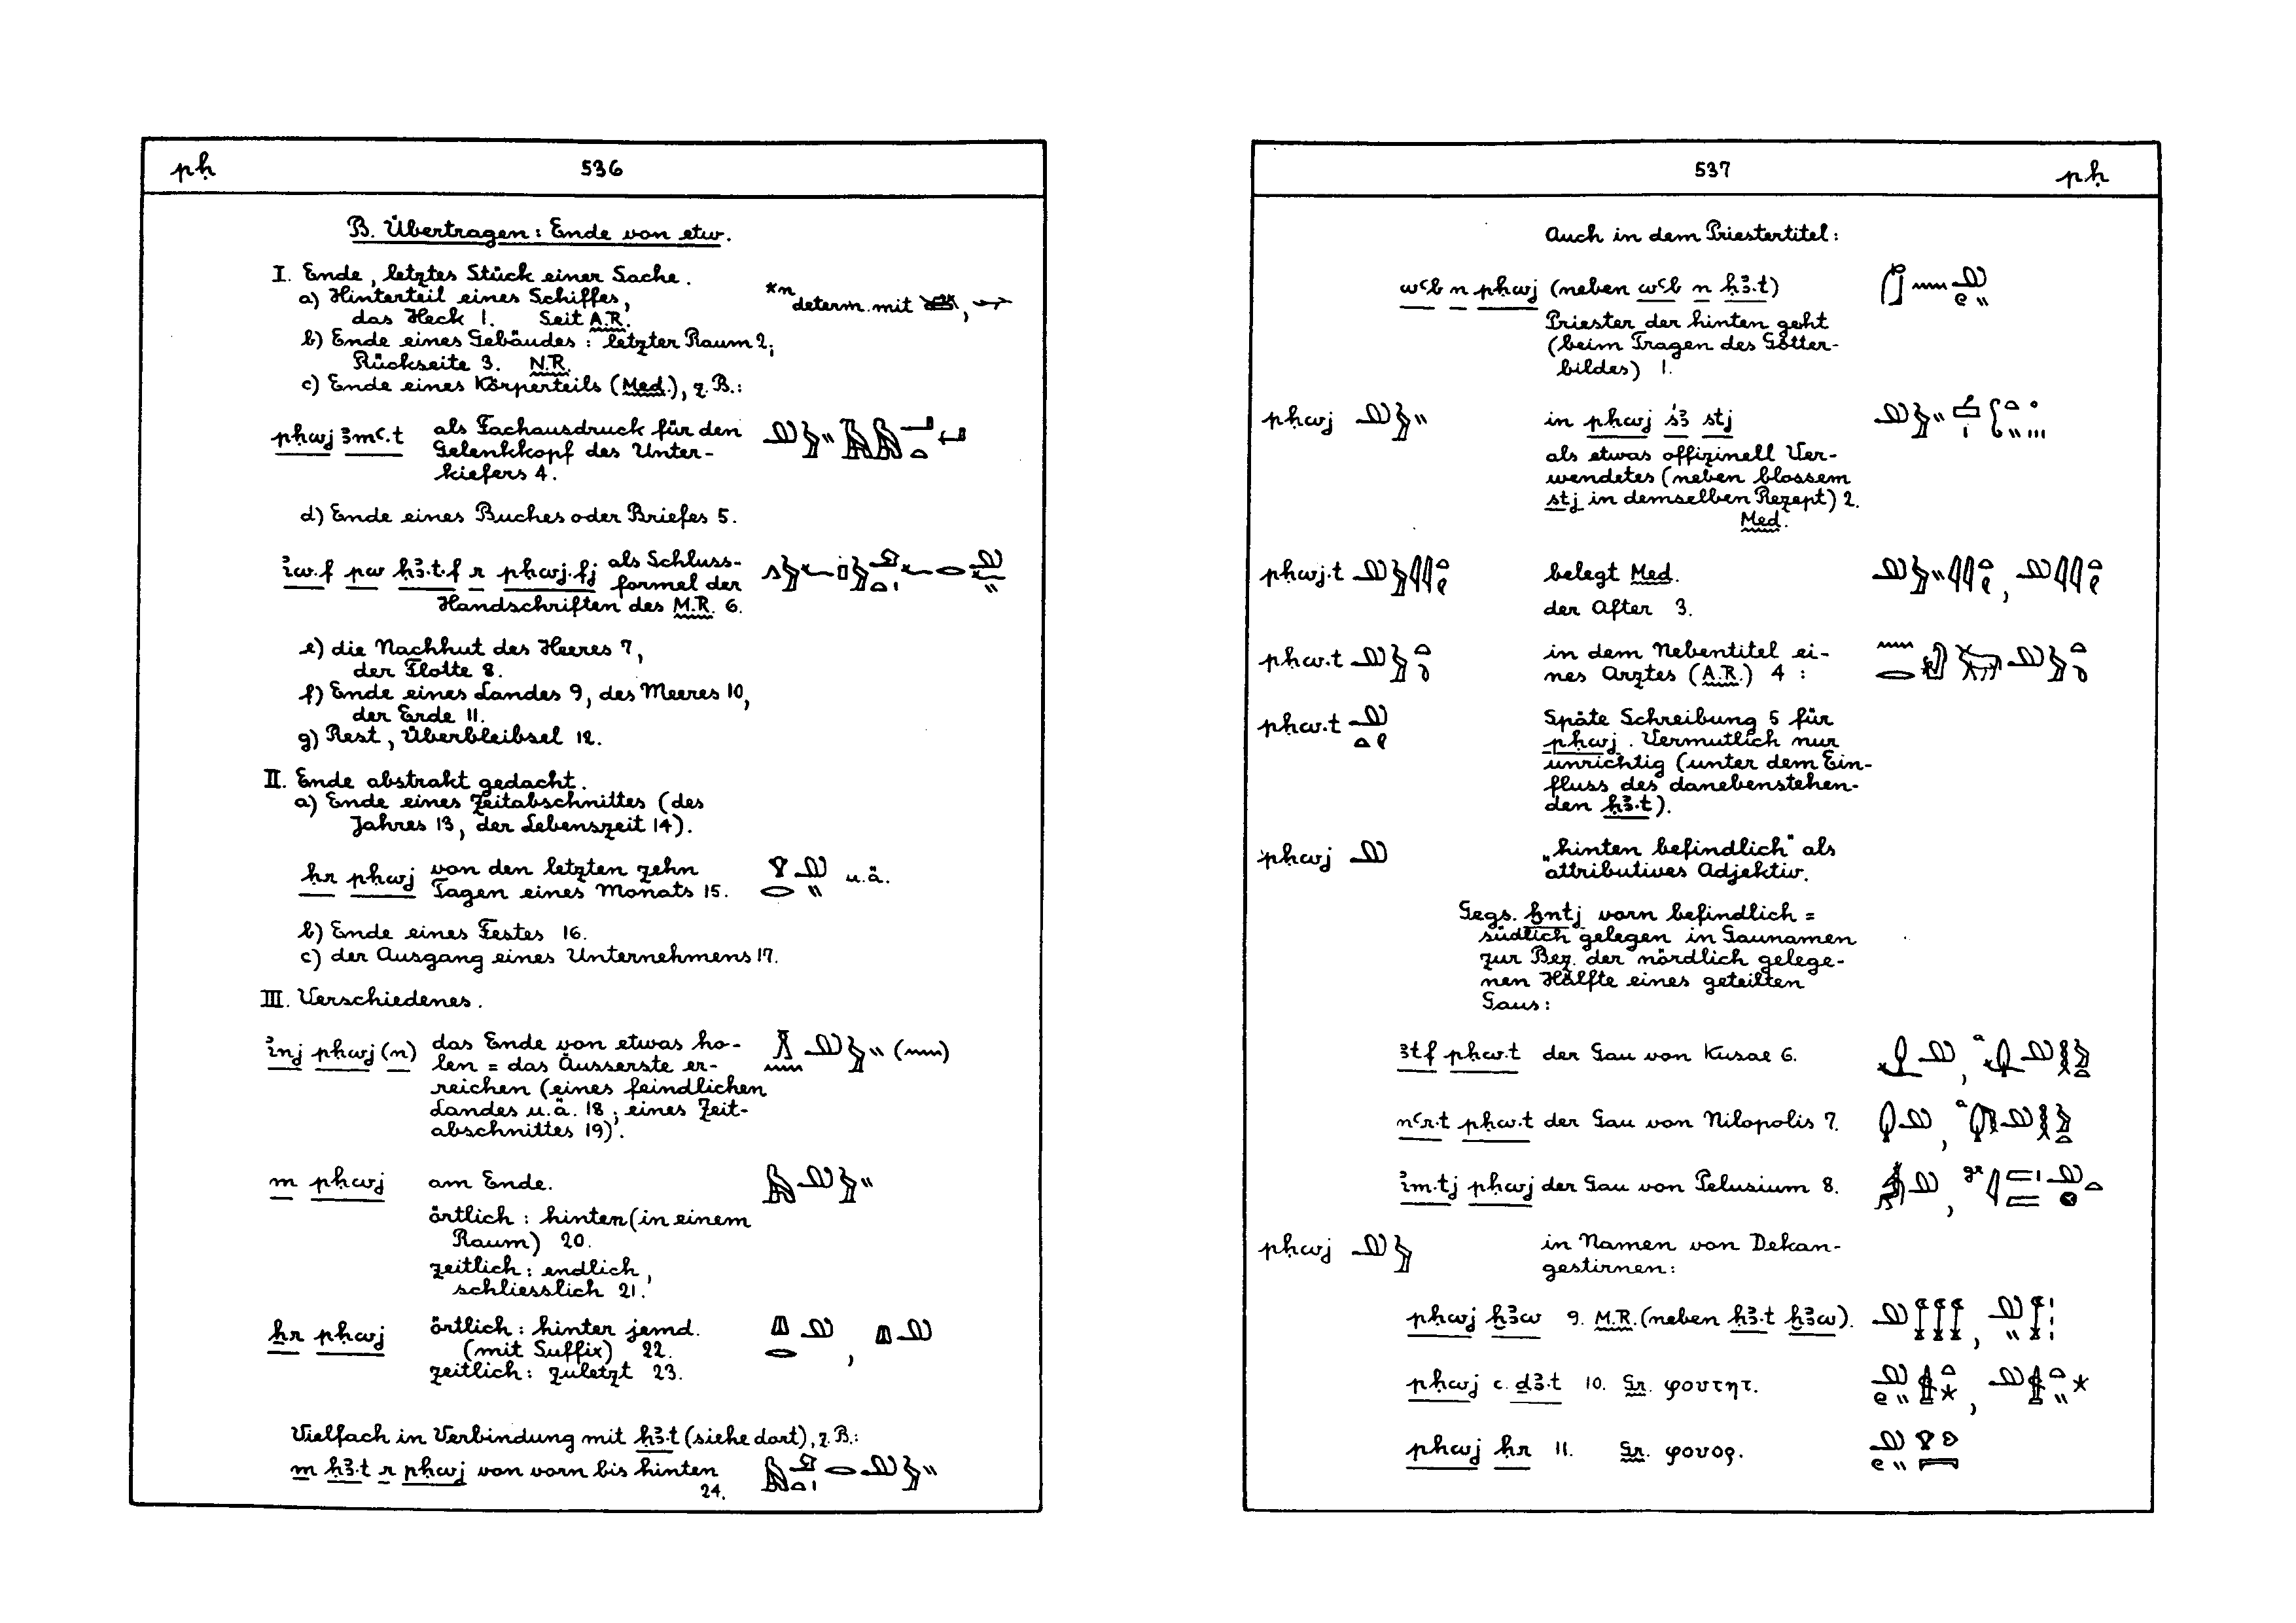 pḥ
536
B. Übertragen: Ende von etw.
I. Ende, letztes Stück einer Sache.
a) Hinterteil eines Schiffes,
das Heck 1. Seit A.R.
*n determ. mit
b) Ende eines Gebäudes: letzter Raum 2;
Rückseite 3. N.R.
c) Ende eines Körperteils (Med.), z.B.:
pḥwj ꜣmꜥ.t als Fachausdruck für den
Gelenkkopf des Unter-
kiefers 4.
d) Ende eines Buches oder Briefes 5.
iw.f pw ḥꜣ.t.f r pḥwj.fj als Schluss-
formel der
Handschriften des M.R. 6.
e) die Nachhut des Heeres 7,
der Flotte 8.
f) Ende eines Landes 9, des Meeres 10,
der Erde 11.
g) Rest, Überbleibsel 12.
II. Ende abstrakt gedacht.
a) Ende eines Zeitabschnittes (des
Jahres 13, der Lebenszeit 14).
ḥr pḥwj von den letzten zehn
Tagen eines Monats 15. u.ä.
b) Ende eines Festes 16.
c) der Ausgang eines Unternehmens 17.
III. Verschiedenes.
inj pḥwj (n) das Ende von etwas ho-
len = das Äusserste er-
reichen (eines feindlichen
Landes u.ä. 18; eines Zeit-
abschnittes 19).
m pḥwj am Ende.
örtlich: hinten (in einem
Raum) 20.
zeitlich: endlich,
schliesslich 21.
ẖr pḥwj örtlich: hinter jemd.
(mit Suffix) 22.
zeitlich: zuletzt 23.
Vielfach in Verbindung mit ḥꜣ.t (siehe dort), z.B.:
m ḥꜣ.t r pḥwj von vorn bis hinten
24.
537
pḥ
Auch in dem Priestertitel:
wꜥb n pḥwj (neben wꜥb n ḥꜣ.t)
Priester der hinten geht
(beim Tragen des Götter-
bildes) 1.
pḥwj in pḥwj śꜣ stj
als etwas offizinell Ver-
wendetes (neben blossem
stj in demselben Rezept) 2.
Med.
pḥwj.t belegt Med.
der After 3.
pḥw.t in dem Nebentitel ei-
nes Arztes (A.R.) 4 :
pḥw.t Späte Schreibung 5 für
pḥwj. Vermutlich nur
unrichtig (unter dem Ein-
fluss des danebenstehen-
den ḥꜣ.t).
pḥwj „hinten befindlich" als
attributives Adjektiv.
Gegs. ḫntj vorn befindlich =
südlich gelegen in Gaunamen
zur Bez. der nördlich gelege-
nen Hälfte eines geteilten
Gaus:
ꜣtf pḥw.t der Gau von Kusae 6.
nꜥr.t pḥw.t der Gau von Nilopolis 7.
im.tj pḥwj der Gau von Pelusium 8.
pḥwj in Namen von Dekan-
gestirnen:
pḥwj ḫꜣw 9. M.R. (neben ḥꜣ.t ḫꜣw).
pḥwj c. dꜣ.t 10. Gr. φουτητ.
pḥwj ḥr 11. Gr. φουορ.